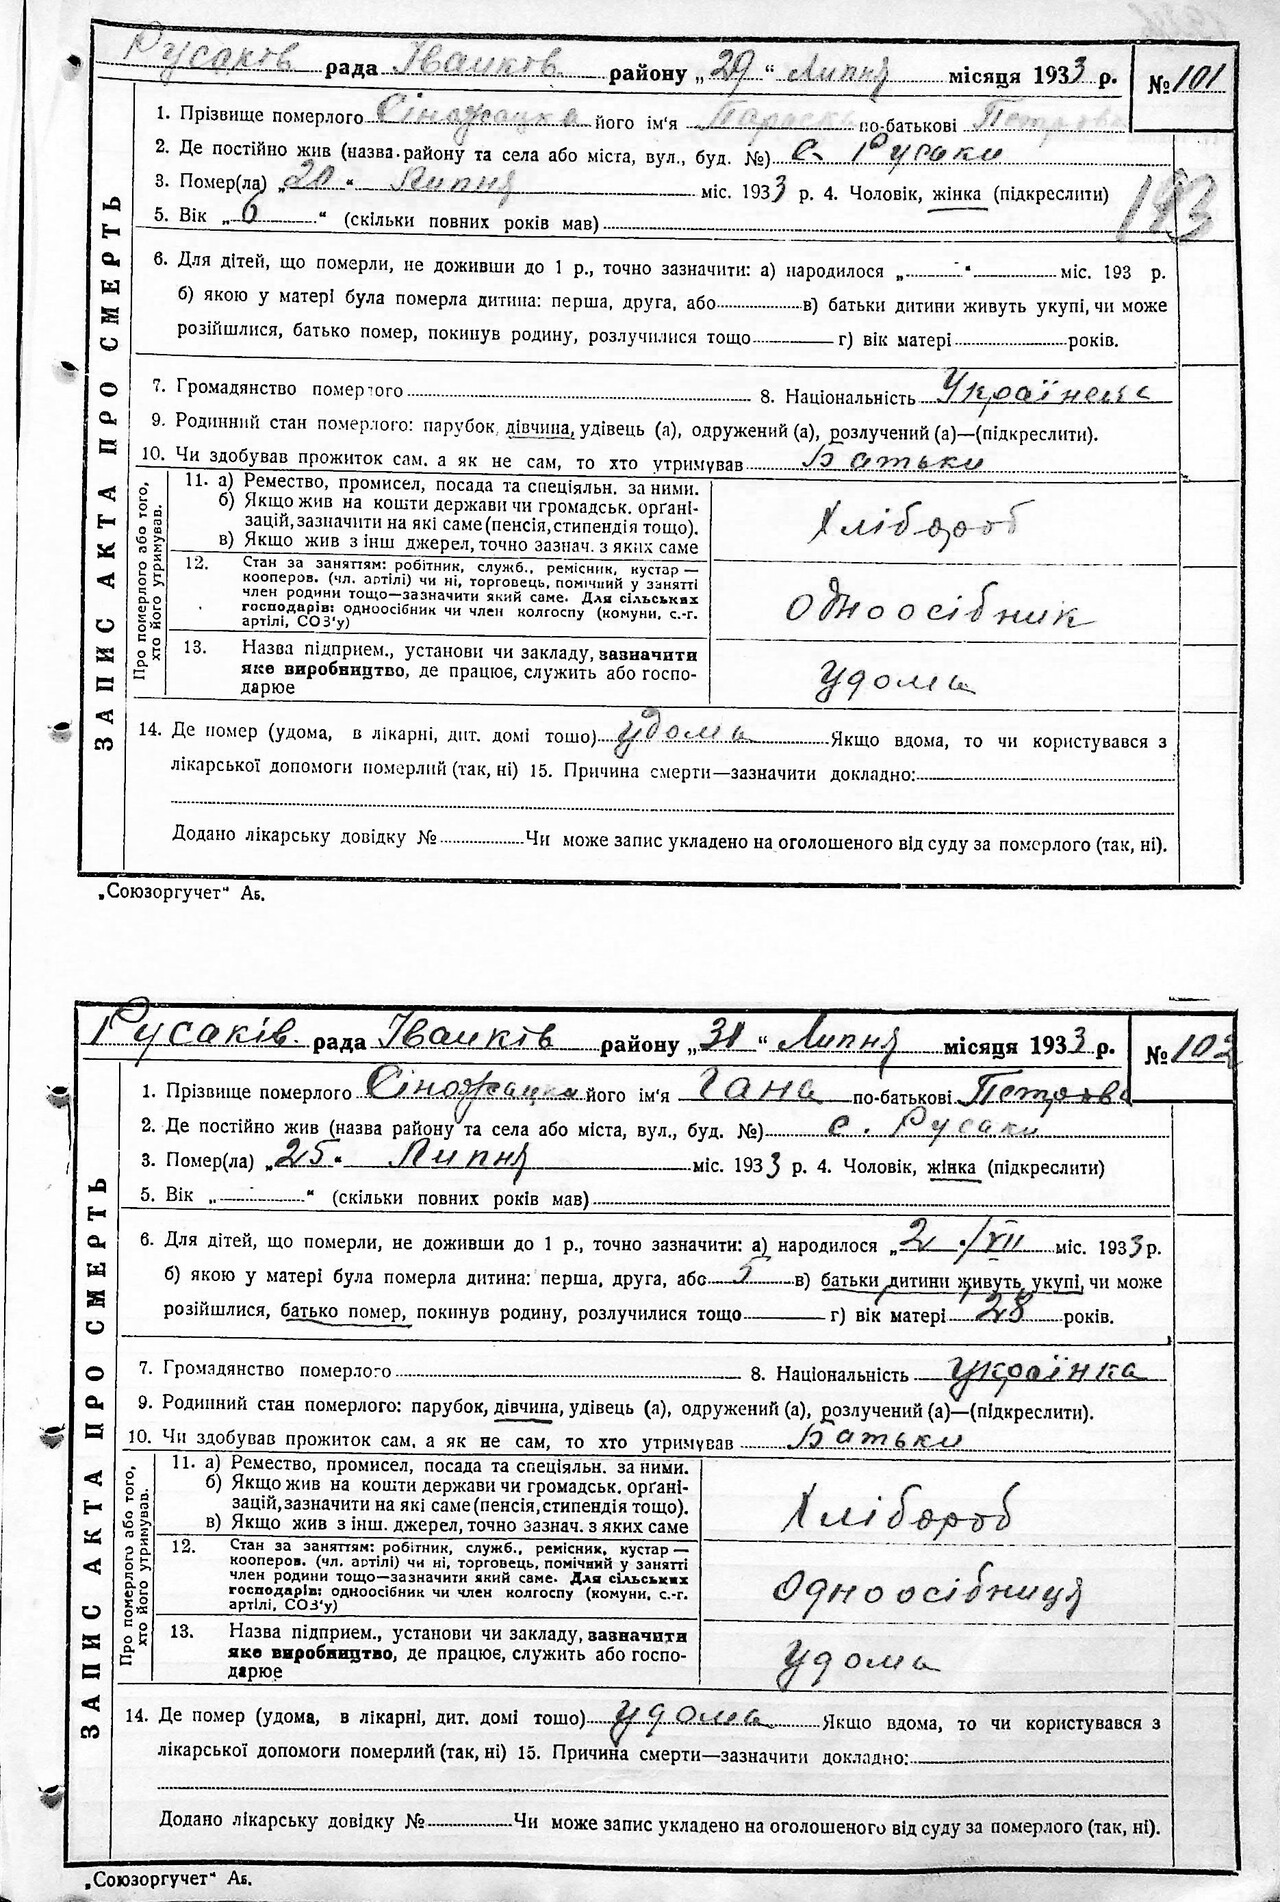 Русаків рада Іванків району „29“ Липня місяця 1933 р. № 101
1. Прізвище померлого Сіножацка його ім'я Параска по-батькові Петрова
2. Де постійно жив (назва району та села або міста, вул., буд. №) с. Русаки
3. Помер(ла) „20“ Липня міс. 1933 р. 4. Чоловік, жінка (підкреслити)
193
5. Вік „6“ (скільки повних років мав)
6. Для дітей, що померли, не доживши до 1 р., точно зазначити: а) народилося „-“ міс. 193 р.
б) якою у матері була померла дитина: перша, друга, або в) батьки дитини живуть укупі, чи може
розійшлися, батько помер, покинув родину, розлучилися тощо г) вік матері років.
7. Громадянство померлого 8. Національність Українська
9. Родинний стан померлого: парубок, дівчина, удівець (а), одружений (а), розлучений (а)—(підкреслити).
10. Чи здобував прожиток сам, а як не сам, то хто утримував Батьки
ЗАПИС АКТА ПРО СМЕРТЬ
Про померлого або того,
хто його утримував.
11. а) Ремество, промисел, посада та спеціяльн. за ними.
б) Якщо жив на кошти держави чи громадськ. орґані-
зацій, зазначити на які саме (пенсія, стипендія тощо).
в) Якщо жив з інш джерел, точно зазнач. з яких саме
Хлібороб
12. Стан за заняттям: робітник, служб., ремісник, кустар—
кооперов. (чл. артілі) чи ні, торговець, помічний у занятті
член родини тощо—зазначити який саме. Для сільських
господарів: одноосібник чи член колгоспу (комуни, с.-г.
артілі, СОЗ'у)
Одноосібник
13. Назва підприєм., установи чи закладу, зазначити
яке виробництво, де працює, служить або госпо-
дарює
Удома
14. Де помер (удома, в лікарні, дит. домі тошо) удома Якщо вдома, то чи користувався з
лікарської допомоги померлий (так, ні) 15. Причина смерти—зазначити докладно:
Додано лікарську довідку № Чи може запис укладено на оголошеного від суду за померлого (так, ні).
„Союзоргучет“ Аб.
Русаків рада Іванків району „31“ Липня місяця 1933 р. № 102
1. Прізвище померлого Сіножацка його ім'я Гана по-батькові Петрова
2. Де постійно жив (назва району та села або міста, вул., буд. №) с. Русаки
3. Помер(ла) „25“ Липня міс. 1933 р. 4. Чоловік, жінка (підкреслити)
5. Вік „-“ (скільки повних років мав)
6. Для дітей, що померли, не доживши до 1 р., точно зазначити: а) народилося „2“/VII міс. 1933 р.
б) якою у матері була померла дитина: перша, друга, або 5 в) батьки дитини живуть укупі, чи може
розійшлися, батько помер, покинув родину, розлучилися тощо г) вік матері 28 років.
7. Громадянство померлого 8. Національність українка
9. Родинний стан померлого: парубок, дівчина, удівець (а), одружений (а), розлучений (а)—(підкреслити).
10. Чи здобував прожиток сам, а як не сам, то хто утримував Батьки
ЗАПИС АКТА ПРО СМЕРТЬ
Про померлого або того,
хто його утримував.
11. а) Ремество, промисел, посада та спеціяльн. за ними.
б) Якщо жив на кошти держави чи громадськ. орґані-
зацій, зазначити на які саме (пенсія, стипендія тощо).
в) Якщо жив з інш. джерел, точно зазнач. з яких саме
Хлібороб
12. Стан за заняттям: робітник, служб., ремісник, кустар—
кооперов. (чл. артілі) чи ні, торговець, помічний у занятті
член родини тощо—зазначити який саме. Для сільських
господарів: одноосібник чи член колгоспу (комуни, с.-г.
артілі, СОЗ'у)
Одноосібниця
13. Назва підприєм., установи чи закладу, зазначити
яке виробництво, де працює, служить або госпо-
дарює
Удома
14. Де помер (удома, в лікарні, дит. домі тошо) удома Якщо вдома, то чи користувався з
лікарської допомоги померлий (так, ні) 15. Причина смерти—зазначити докладно:
Додано лікарську довідку № Чи може запис укладено на оголошеного від суду за померлого (так, ні).
„Союзоргучет“ Аб.